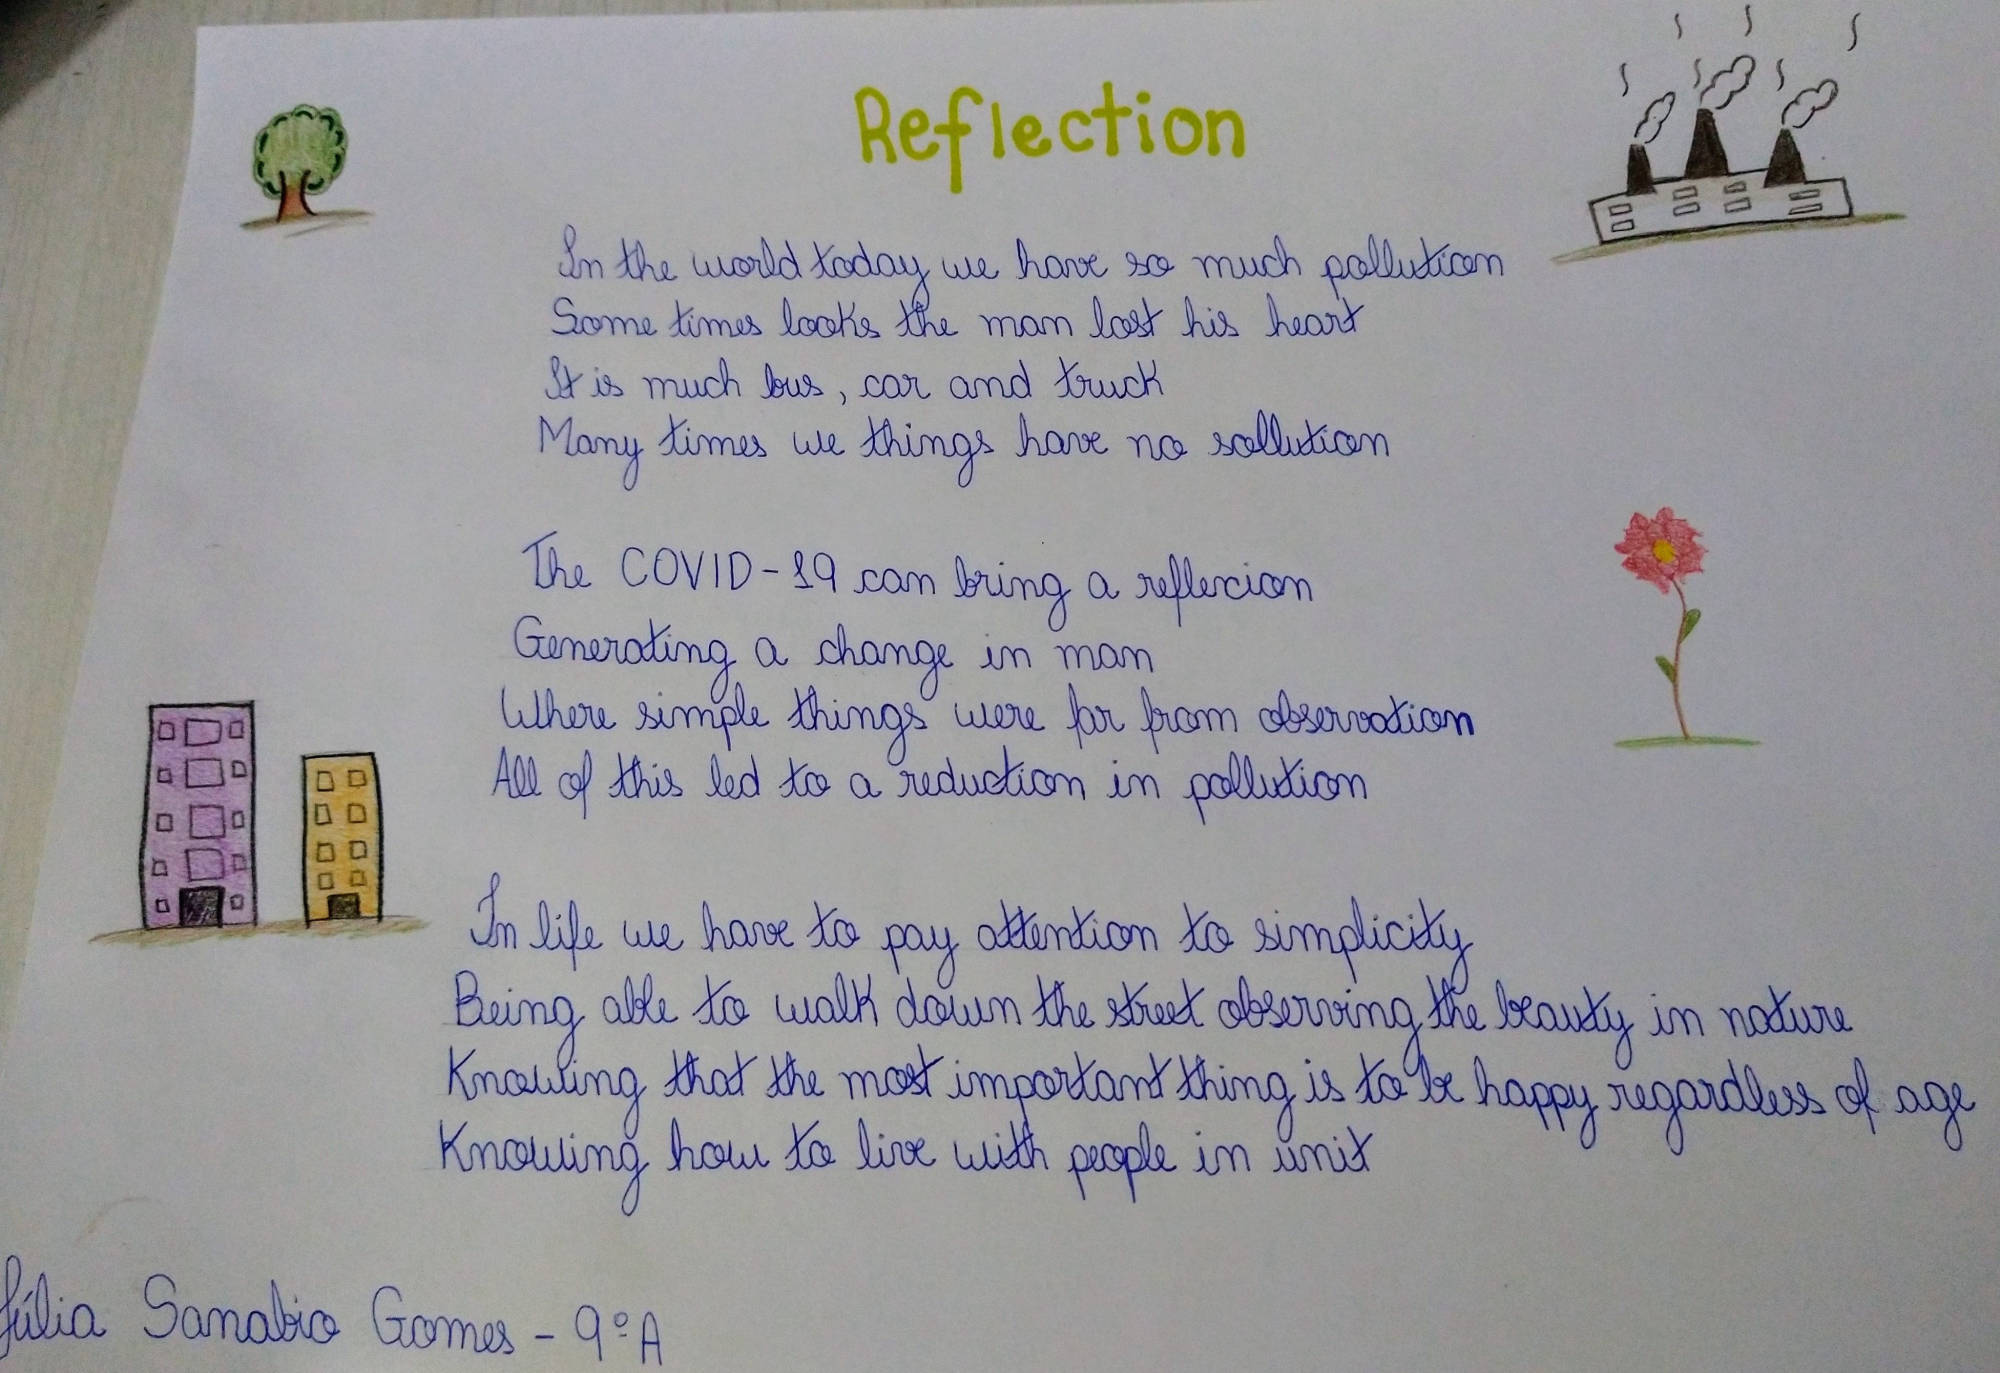 Reflection
In the world today we have so much pollution
Some times looks the man lost his heart
It is much bus, car and truck
Many times we things have no sollution
The COVID-19 can bring a reflexion
Generating a change in man
Where simple things were far from observation
All of this led to a reduction in pollution
In life we have to pay attention to simplicity
Being able to walk down the street observing the beauty in nature
Knowing that the most important thing is to be happy regardless of age
Knowing how to live with people in unit
Júlia Sanabio Gomes - 9º A